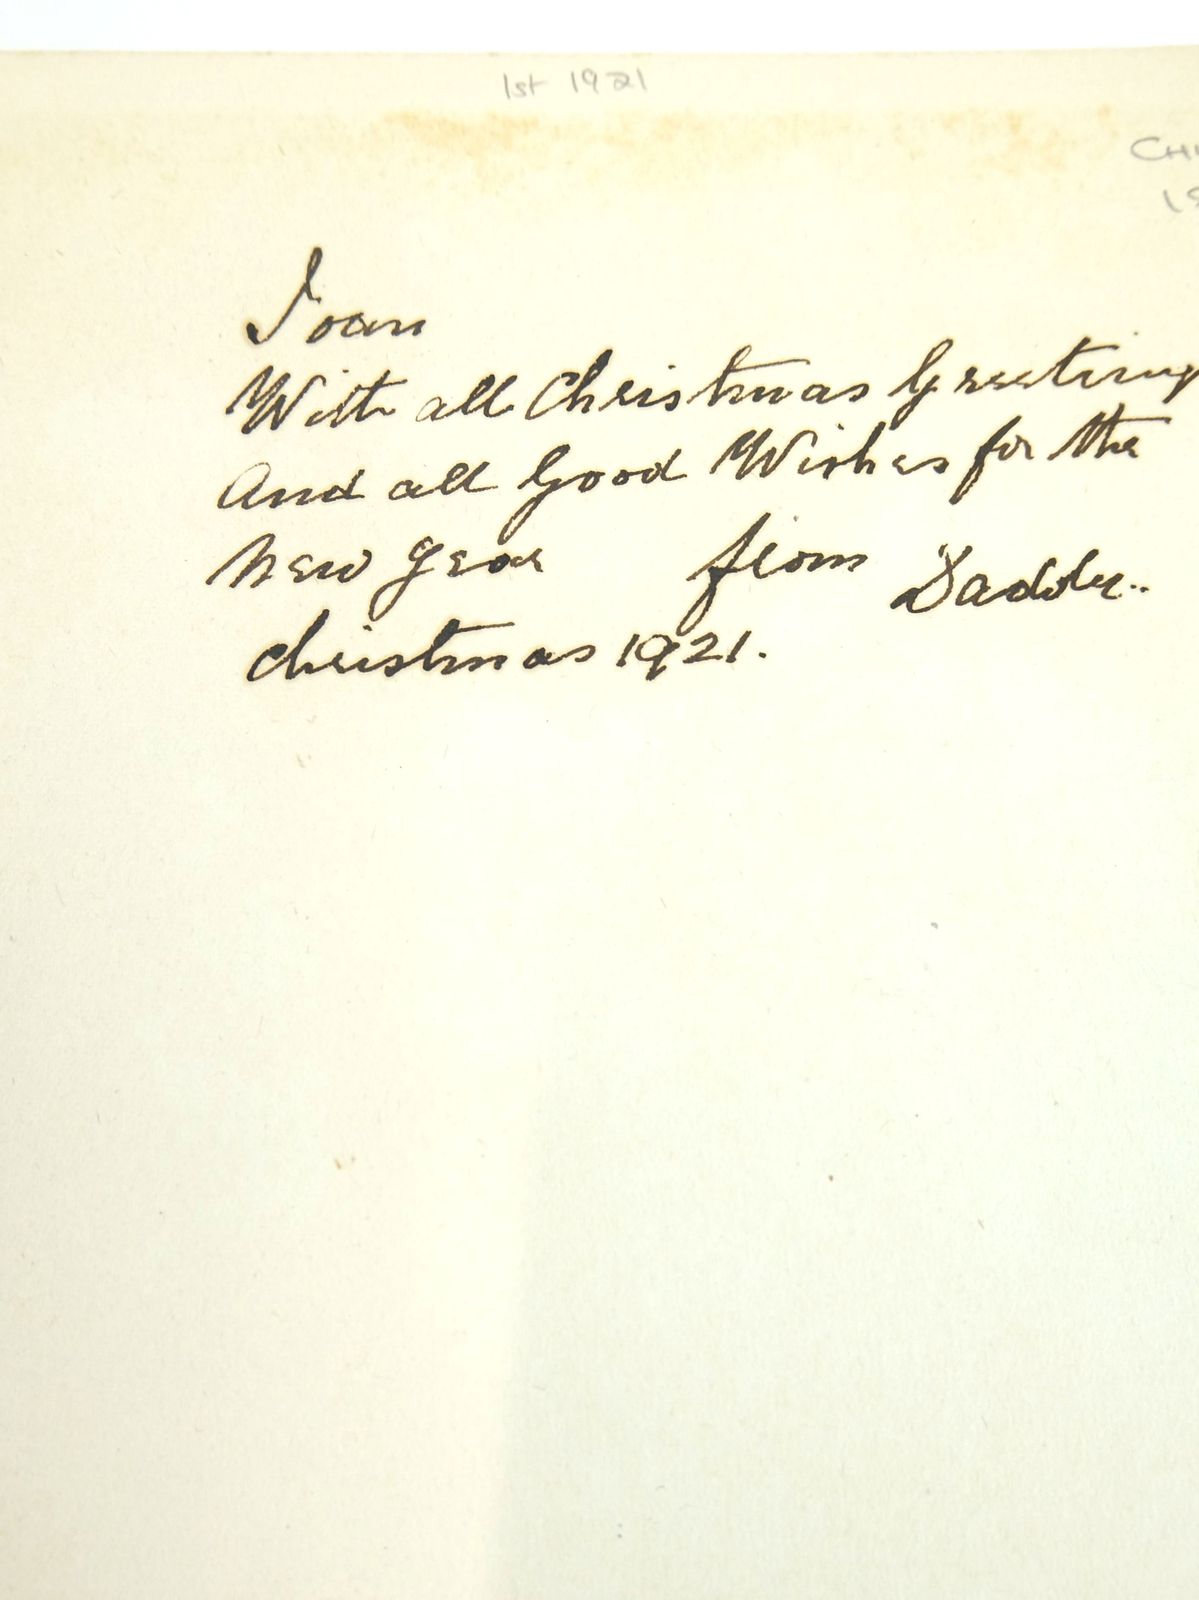 1st 1921
Joan
With all Christmas Greeting
And all Good Wishes for the
New Year from Daddy..
Christmas 1921.